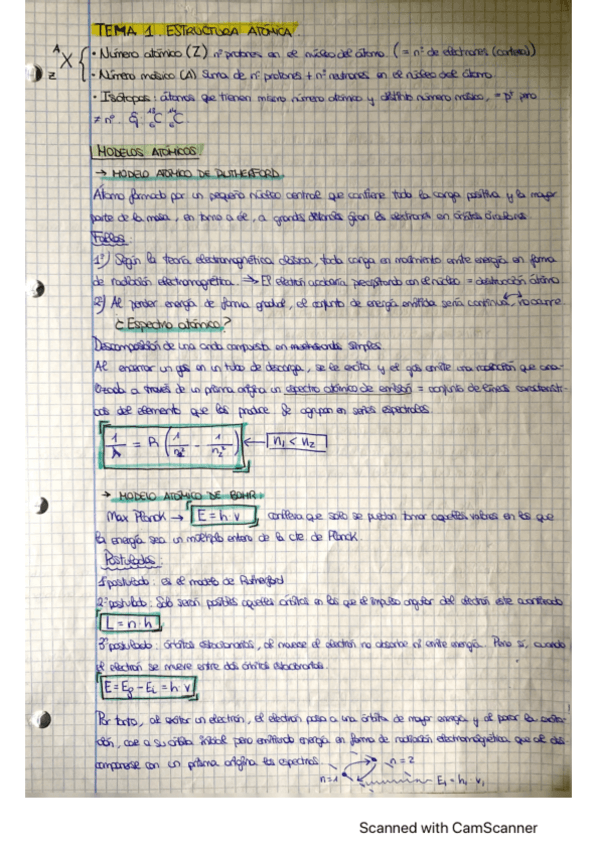 TEMA 1. ESTRUCTURA ATÓMICA
A
Z X { · Número atómico (Z) nº protones en el núcleo del átomo. (= nº de electrones (corteza))
· Número másico (A) Suma de nº protones + nº neutrones en el núcleo del átomo
· Isótopos: átomos que tienen mismo número atómico y distinto número másico, = p⁺ pero
≠ nº.
MODELOS ATÓMICOS
→ MODELO ATÓMICO DE RUTHERFORD
Átomo formado por un pequeño núcleo central que contiene toda la carga positiva y la mayor
parte de la masa, en torno a él, a grandes distancias giran los electrones en órbitas circulares
Fallos:
1º) Según la teoría electromagnética clásica, toda carga en movimiento emite energía en forma
de radiación electromagnética. → El electrón acabaría precipitando en el núcleo = destrucción átomo
2º) Al perder energía de forma gradual, el conjunto de energía emitida sería continua, no ocurre.
¿Espectro atómico?
Descomposición de una onda compuesta en simples
Al encerrar un gas en un tubo de descarga, se le excita y el gas emite una radiación que ana-
lizada a través de un prisma origina un espectro atómico de emisión = conjunto de líneas característi-
cas del elemento que las produce. Se agrupan en series espectrales.
1/λ = R (1/n₁² - 1/n₂²) ← n₁ < n₂
→ MODELO ATÓMICO DE BOHR
Max Planck → E = h·ν, conlleva que solo se puedan tomar aquellos valores en los que
la energía sea un múltiplo entero de la cte de Planck.
Postulados:
1º postulado: es el modelo de Rutherford
2º postulado: Solo serán posibles aquellas órbitas en las que el impulso angular del electrón este cuantizado
L = n·h
3º postulado: órbitas estacionarias, al moverse el electrón no absorbe ni emite energía. Pero sí, cuando
el electrón se mueve entre dos órbitas estacionarias.
E = Ef - Ei = h·ν
Por tanto, al excitar un electrón, el electrón pasa a una órbita de mayor energía y al parar la excita-
ción, cae a su órbita inicial pero emitiendo energía en forma de radiación electromagnética, que al des-
componerse con un prisma origina los espectros.
n=1 n=2 E₁ = h·ν₁
Scanned with CamScanner